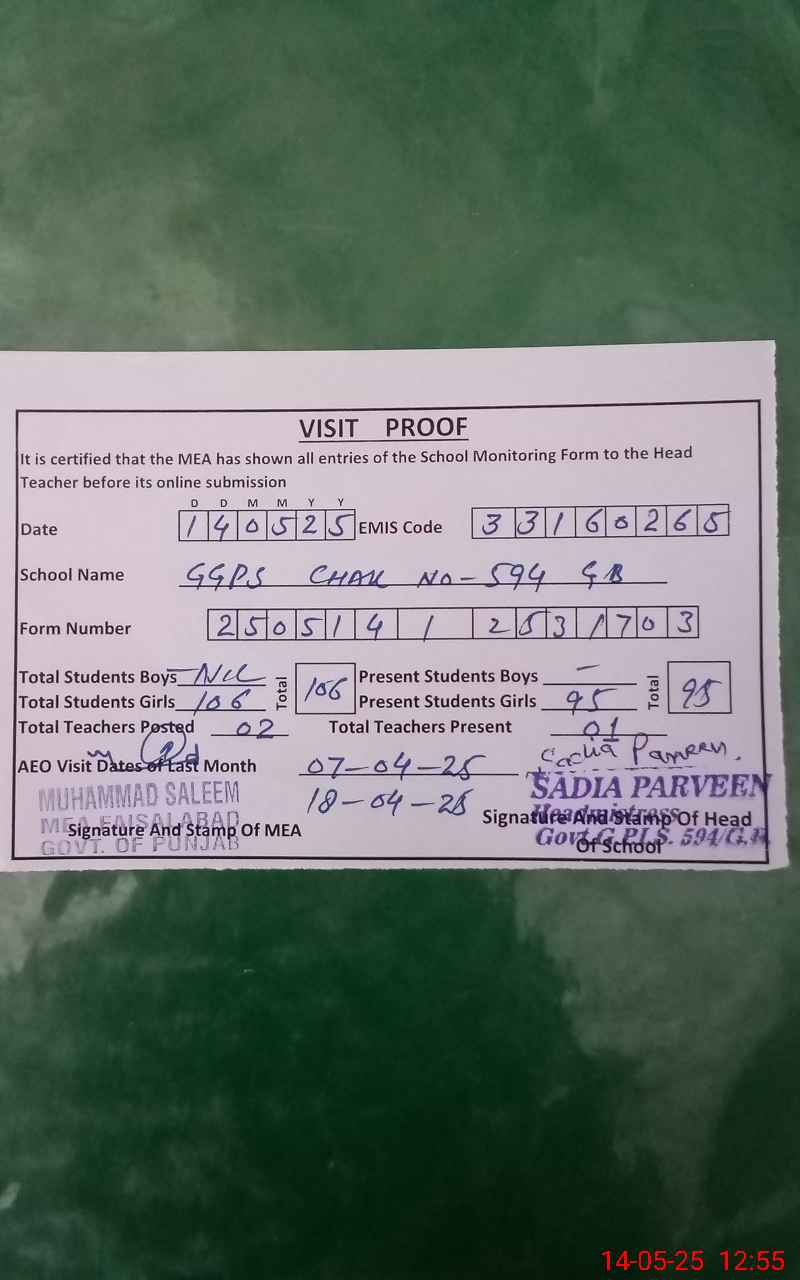 VISIT PROOF
It is certified that the MEA has shown all entries of the School Monitoring Form to the Head
Teacher before its online submission
D D M M Y Y
Date 1 4 0 5 2 5 EMIS Code 3 3 1 6 0 2 6 5
School Name GGPS CHAK NO-594 GB
Form Number 2 5 0 5 1 4 1 2 5 3 1 7 0 3
Total Students Boys Nil Total 106 Present Students Boys — Total 95
Total Students Girls 106 Present Students Girls 95
Total Teachers Posted 02 Total Teachers Present 01
Sadia Parveen.
AEO Visit Dates of Last Month 07-04-25
18-04-25
MUHAMMAD SALEEM
MEA FAISALABAD
GOVT. OF PUNJAB
Signature And Stamp Of MEA
SADIA PARVEEN
Headmistress
Govt.G.P/S. 594/G.B
Signature And Stamp Of Head
Of School
14-05-25 12:55